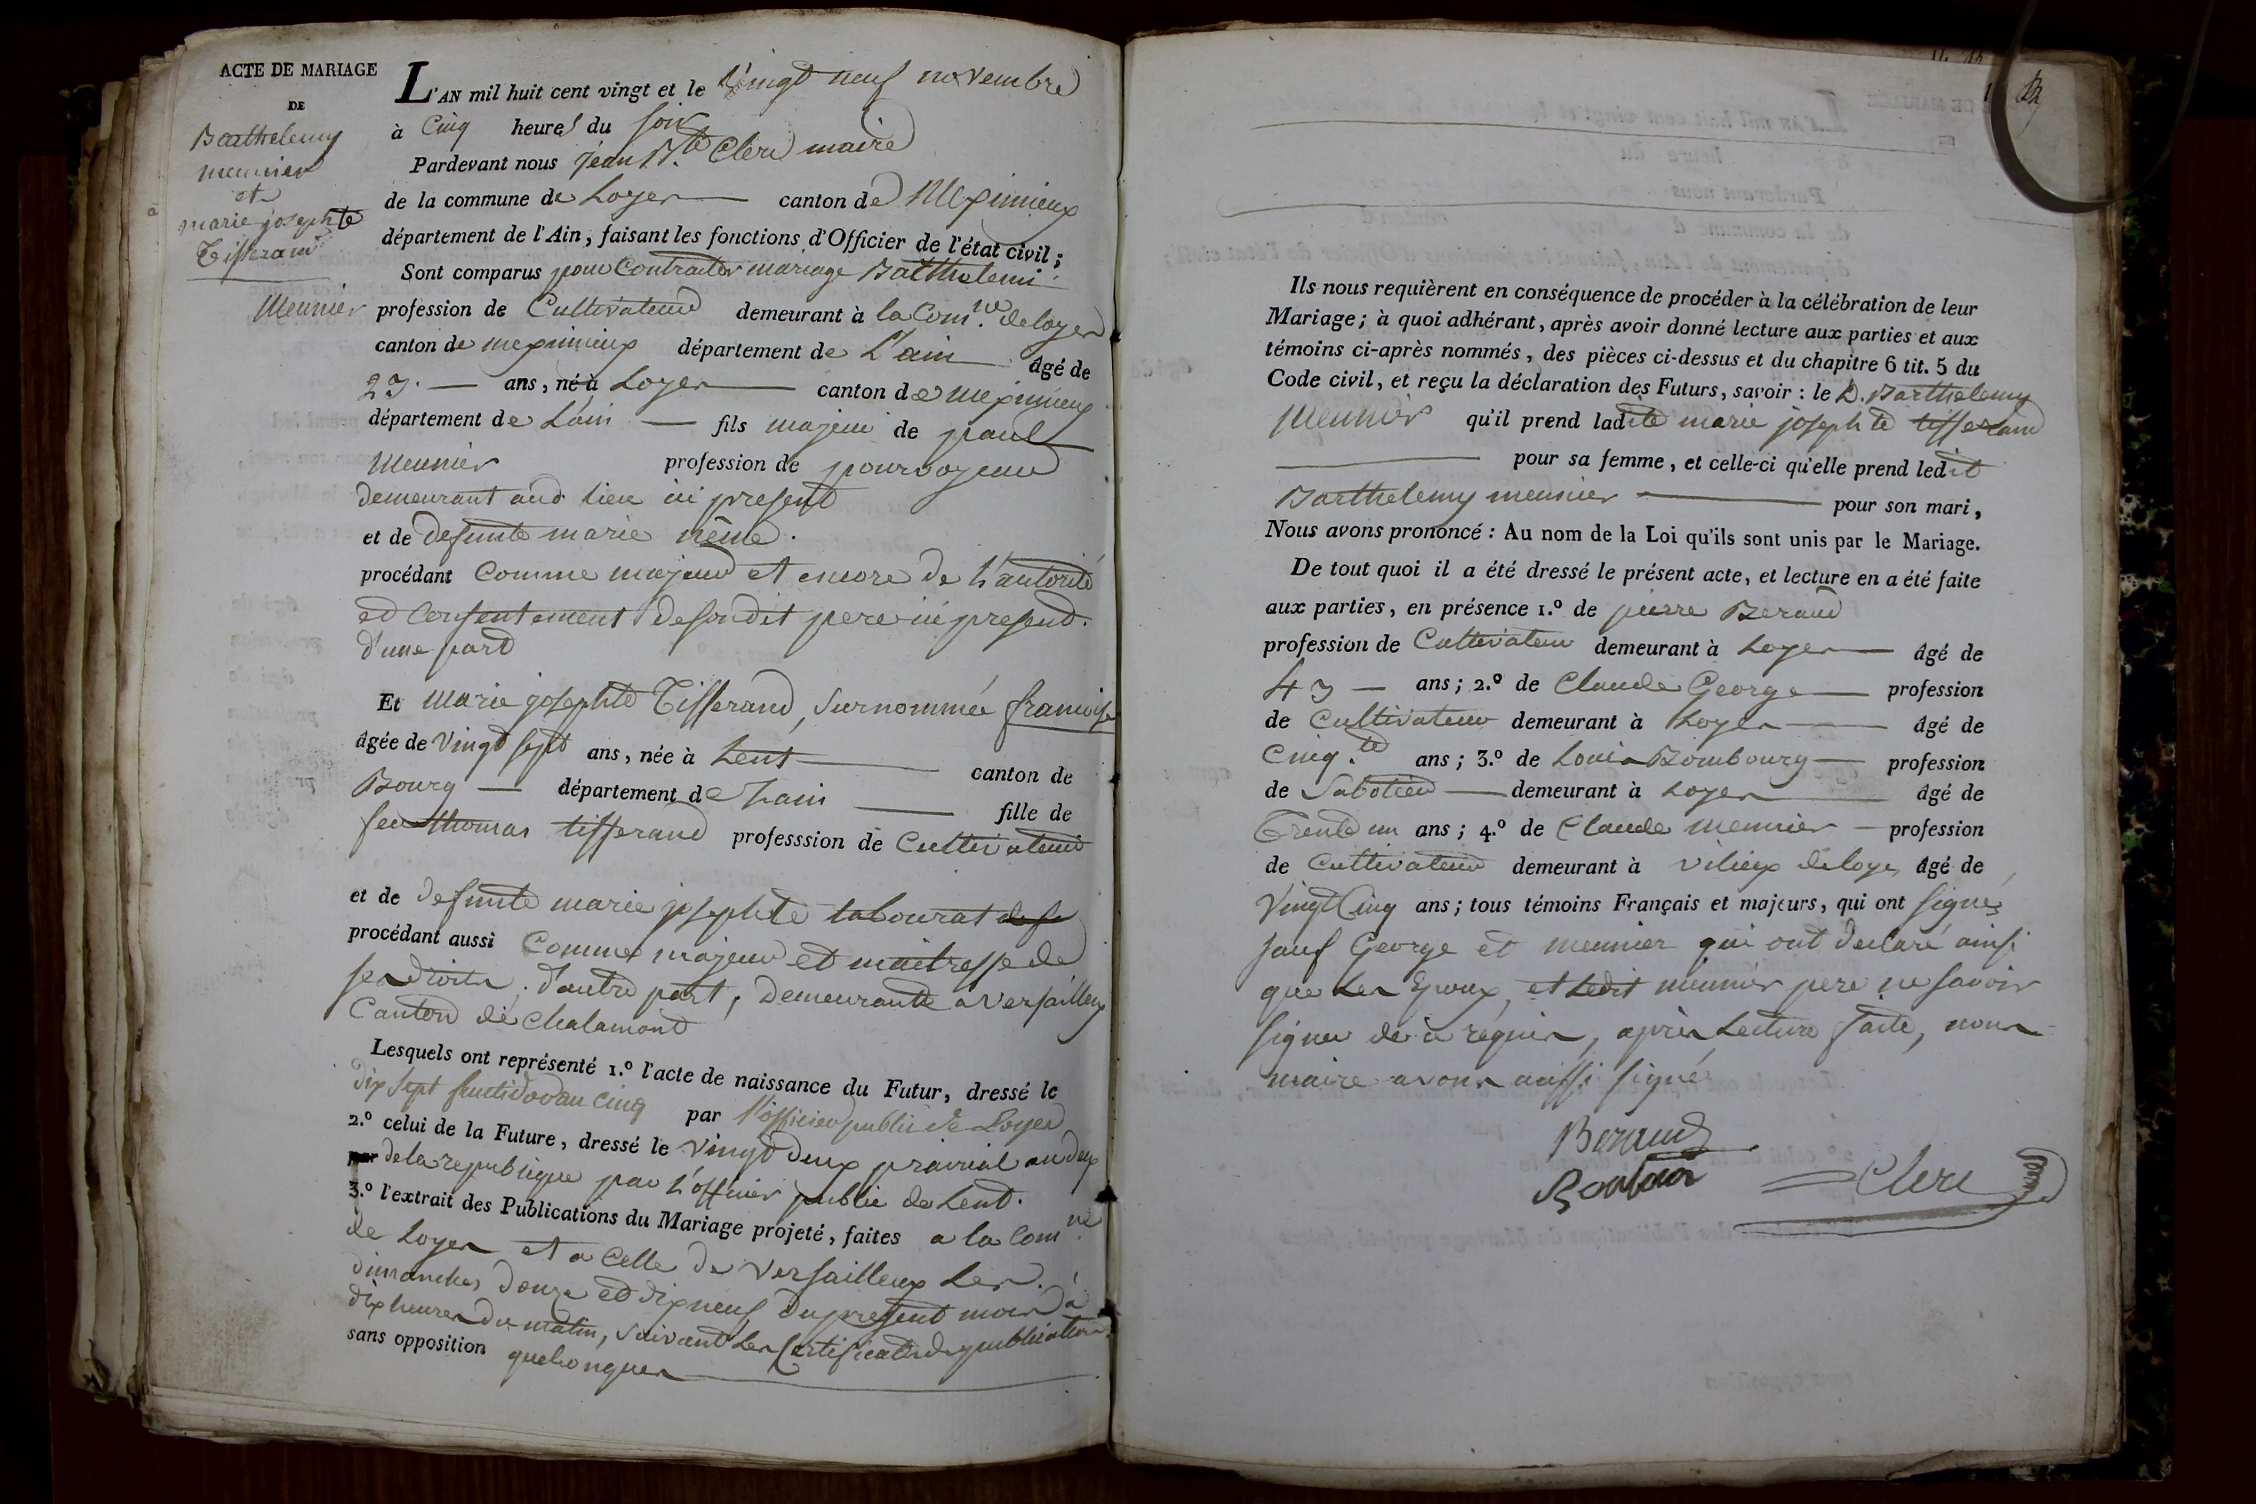 ACTE DE MARIAGE
DE
Barthelemy
meunier
et
marie josephte
Tisserand
L'AN mil huit cent vingt et le Vingt neuf novembre
à Cinq heures du soir
Pardevant nous jean B.te Clerc maire
de la commune de Loyes canton de Meximieux
département de l'Ain, faisant les fonctions d'Officier de l'état civil;
Sont comparus pour Contracter mariage Barthelemi
Meunier profession de Cultivateur demeurant à la Com.ne de loyes
canton de meximieux département de L'ain âgé de
23. ans, né à Loyes canton de meximieux
département de L'ain fils majeur de paul
Meunier profession de pourvoyeur
demeurant aud. lieu ici present
et de defunte marie
procédant Comme majeur et encore de L'autorité
et Consentement de sondit pere ici present.
d'une part
Et Marie josephte Tisserand, surnommée francoise
âgée de Vingt sept ans, née à Lent canton de
Bourg département de L'ain fille de
feu thomas tisserand professsion de Cultivateur
et de defunte marie josephte labourat
procédant aussi Comme majeur et maitresse de
ses droits, d'autre part, demeurante a versailleux
Canton de Chalamont
Lesquels ont représenté 1.º l'acte de naissance du Futur, dressé le
dix sept fructidor an cinq par l'officier public de Loyes
2.º celui de la Future, dressé le vingt deux prairial an deux
par de la republique par L'officier public de Lent.
3.º l'extrait des Publications du Mariage projeté, faites a la Com.ne
de Loyes et a Celle de Versailleux Les
dimanches douze et dix neuf du present mois à
dix heures du matin, suivant Les Certificats de publication
sans opposition quelconques
Ils nous requièrent en conséquence de procéder à la célébration de leur
Mariage; à quoi adhérant, après avoir donné lecture aux parties et aux
témoins ci-après nommés, des pièces ci-dessus et du chapitre 6 tit. 5 du
Code civil, et reçu la déclaration des Futurs, savoir: le d. Barthelemy
Meunier qu'il prend ladite marie josephte tisserand
pour sa femme, et celle-ci qu'elle prend ledit
Barthelemy meunier pour son mari,
Nous avons prononcé: Au nom de la Loi qu'ils sont unis par le Mariage.
De tout quoi il a été dressé le présent acte, et lecture en a été faite
aux parties, en présence 1.º de pierre Beraud
profession de Cultivateur demeurant à Loyes âgé de
43 ans; 2.º de Claude George profession
de Cultivateur demeurant à Loyes âgé de
Cinq.te ans; 3.º de Louis Bombourg profession
de Sabotier demeurant à Loyes âgé de
Trente un ans; 4.º de Claude meunier profession
de Cultivateur demeurant à vilieux de loyes âgé de
Vingt Cinq ans; tous témoins Français et majeurs, qui ont signés
sauf George et meunier qui ont declaré ainsi
que Les Epoux, et Ledit meunier pere ne savoir
signer de ce requis, après Lecture faite, nous
maire avons aussi signé
Beraud
Clerc